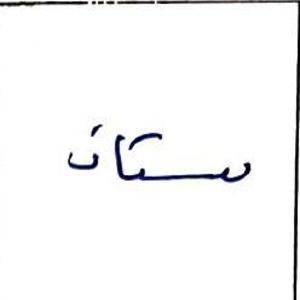 ستان